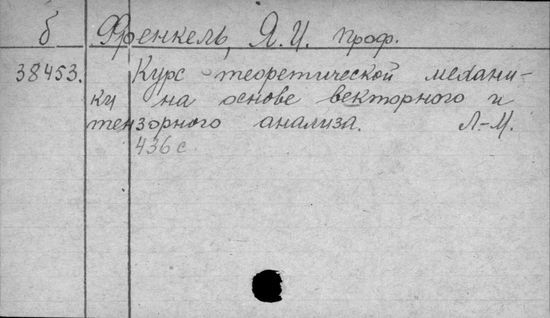 б Френкель, Я. И. проф.
38453. Курс теоретической механи-
ку на основе векторного и
тензорного анализа. Л.-М.
436 с